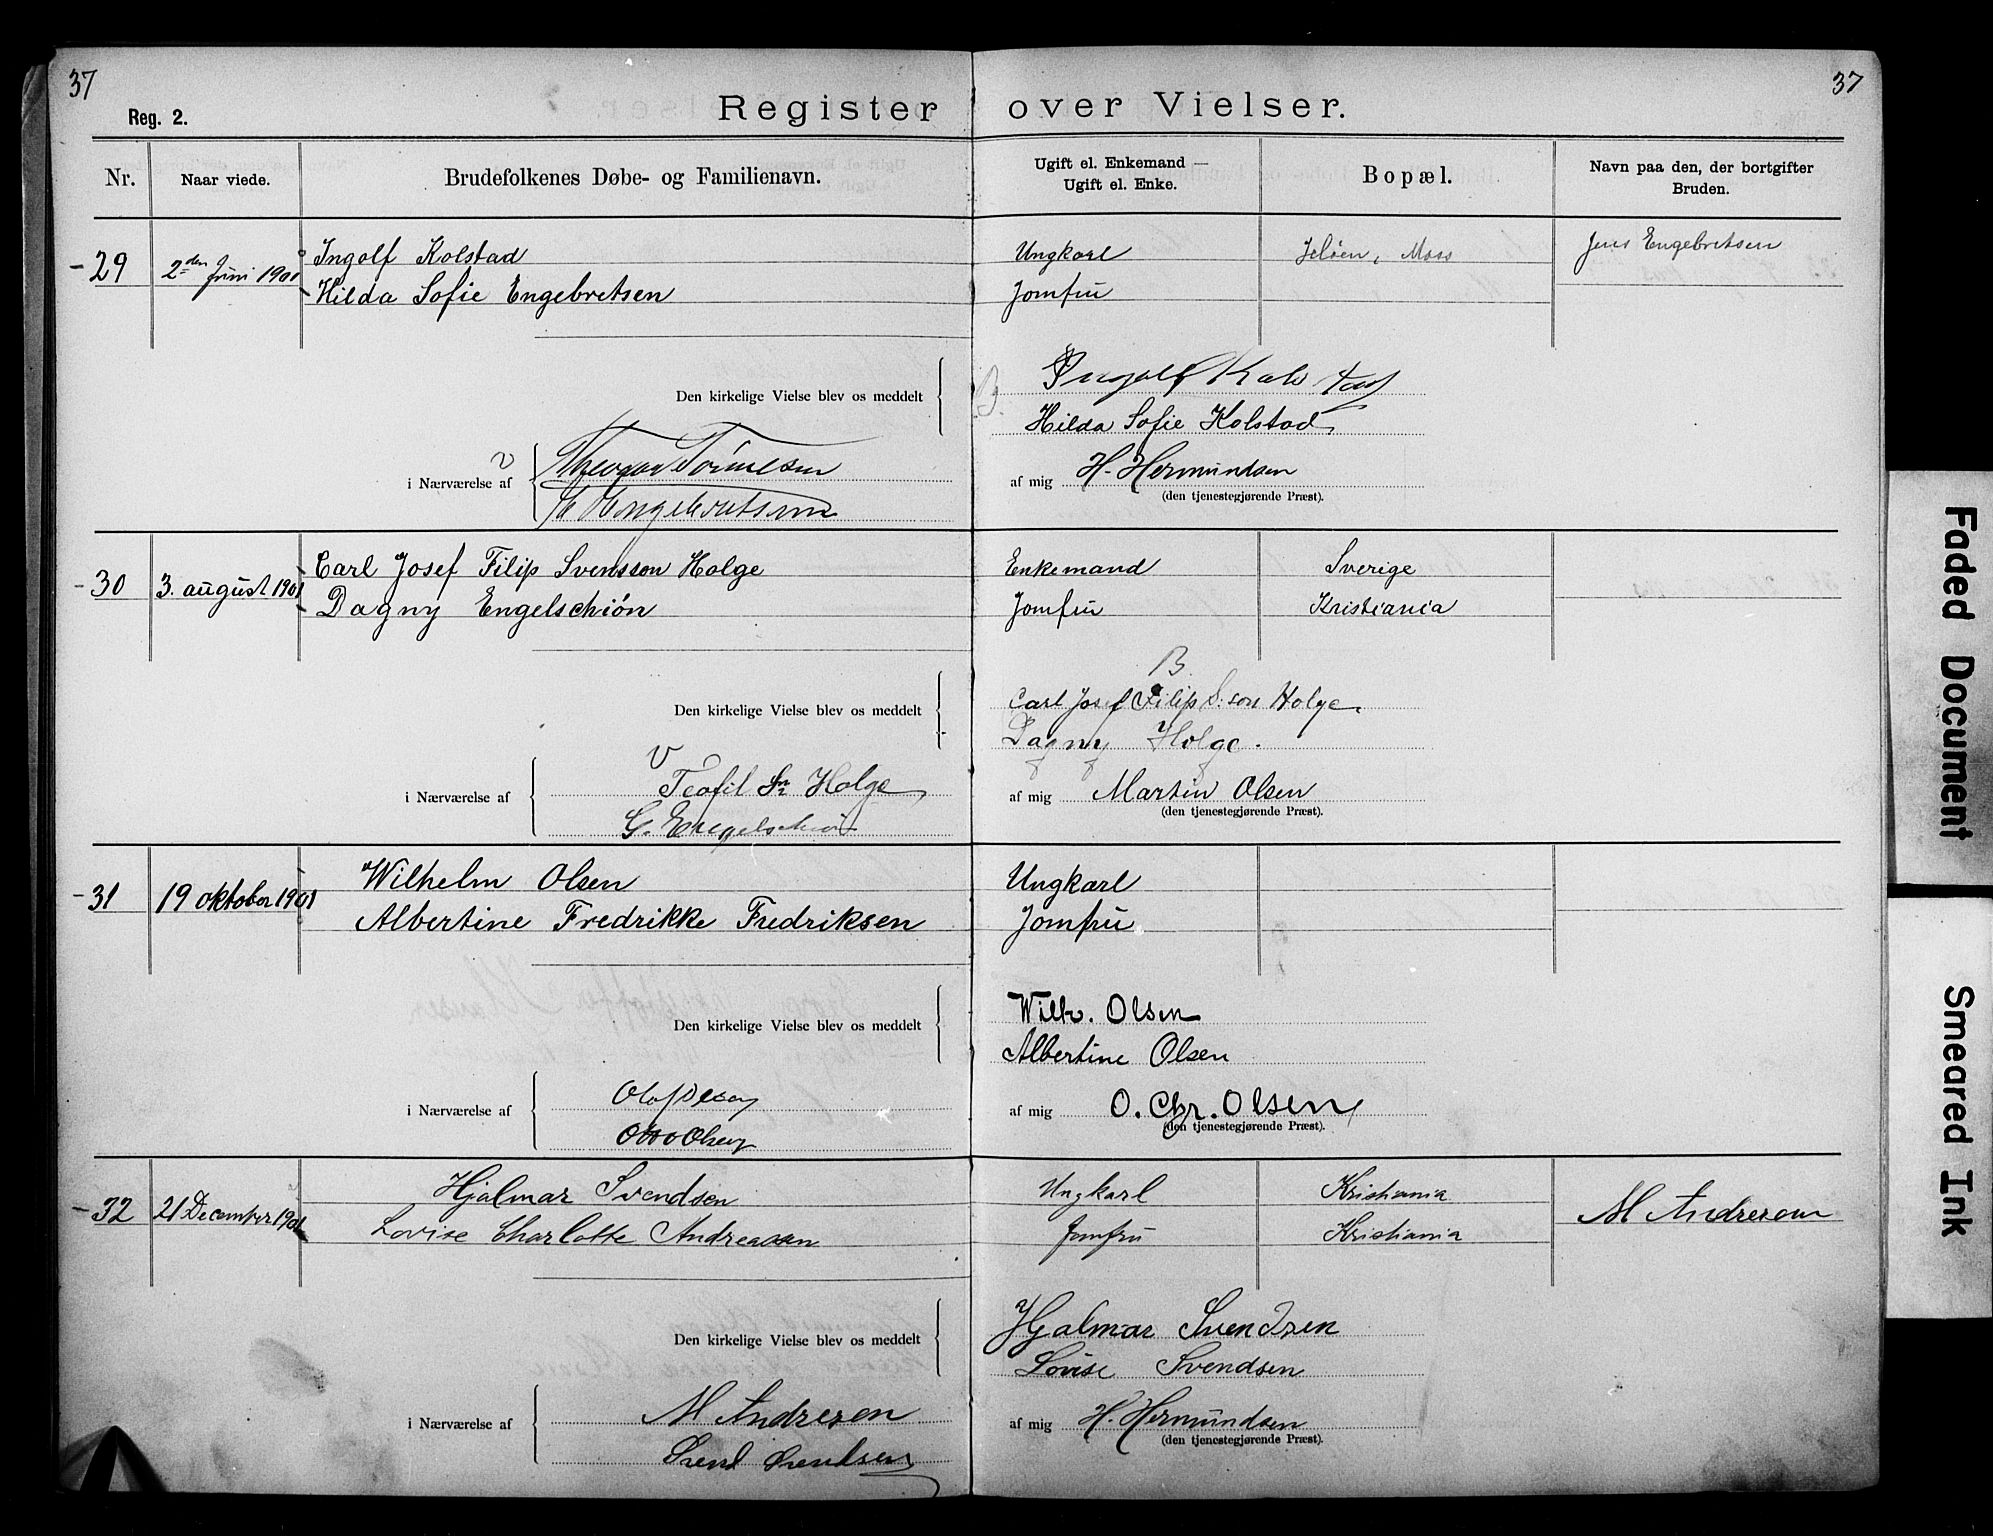 37
37
Reg. 2.
Register over Vielser.
Nr.
Naar viede.
Brudefolkenes Døbe- og Familienavn.
Ugift el. Enkemand —
Ugift el. Enke.
Bopæl.
Navn paa den, der bortgifter
Bruden.
29
2den Juni 1901
Ingolf Kolstad
Ungkarl
Jeløen, Moss
Jens Engebretsen
Hilda Sofie Engebretsen
Jomfru
Den kirkelige Vielse blev os meddelt
B.
Ingolf Kolstad
Hilda Sofie Kolstad
i Nærværelse af
Engebretsen
af mig H. Hermundsen
(den tjenestegjørende Præst).
30
3. august 1901
Carl Josef Filip Svensson Holge
Enkemand
Sverige
Dagny Engelschiøn
Jomfru
Kristiania
B.
Den kirkelige Vielse blev os meddelt
Carl Josef Filip S:son Holge
Dagny Holge.
V
i Nærværelse af
Teofil Sn Holge
G. Engelschiøn
af mig Martin Olsen
(den tjenestegjørende Præst).
31
19 oktober 1901
Wilhelm Olsen
Ungkarl
Albertine Fredrikke Fredriksen
Jomfru
Den kirkelige Vielse blev os meddelt
Wilh. Olsen
Albertine Olsen
i Nærværelse af
Olaf
Otto Olsen
af mig O. Chr. Olsen
(den tjenestegjørende Præst).
32
21 December 1901
Hjalmar Svendsen
Ungkarl
Kristiania
M Andresen
Lovise Charlotte Andreassen
Jomfru
Kristiania
Den kirkelige Vielse blev os meddelt
Hjalmar Svendsen
Lovise Svendsen
i Nærværelse af
M Andresen
Svend Svendsen
af mig H. Hermundsen
(den tjenestegjørende Præst).
Faded Document
Smeared Ink